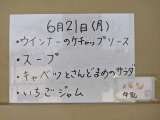 6月21日(月)
・ウインナーのケチャップソース
・スープ
・キャベツとさんどまめのサラダ
・いちごジャム